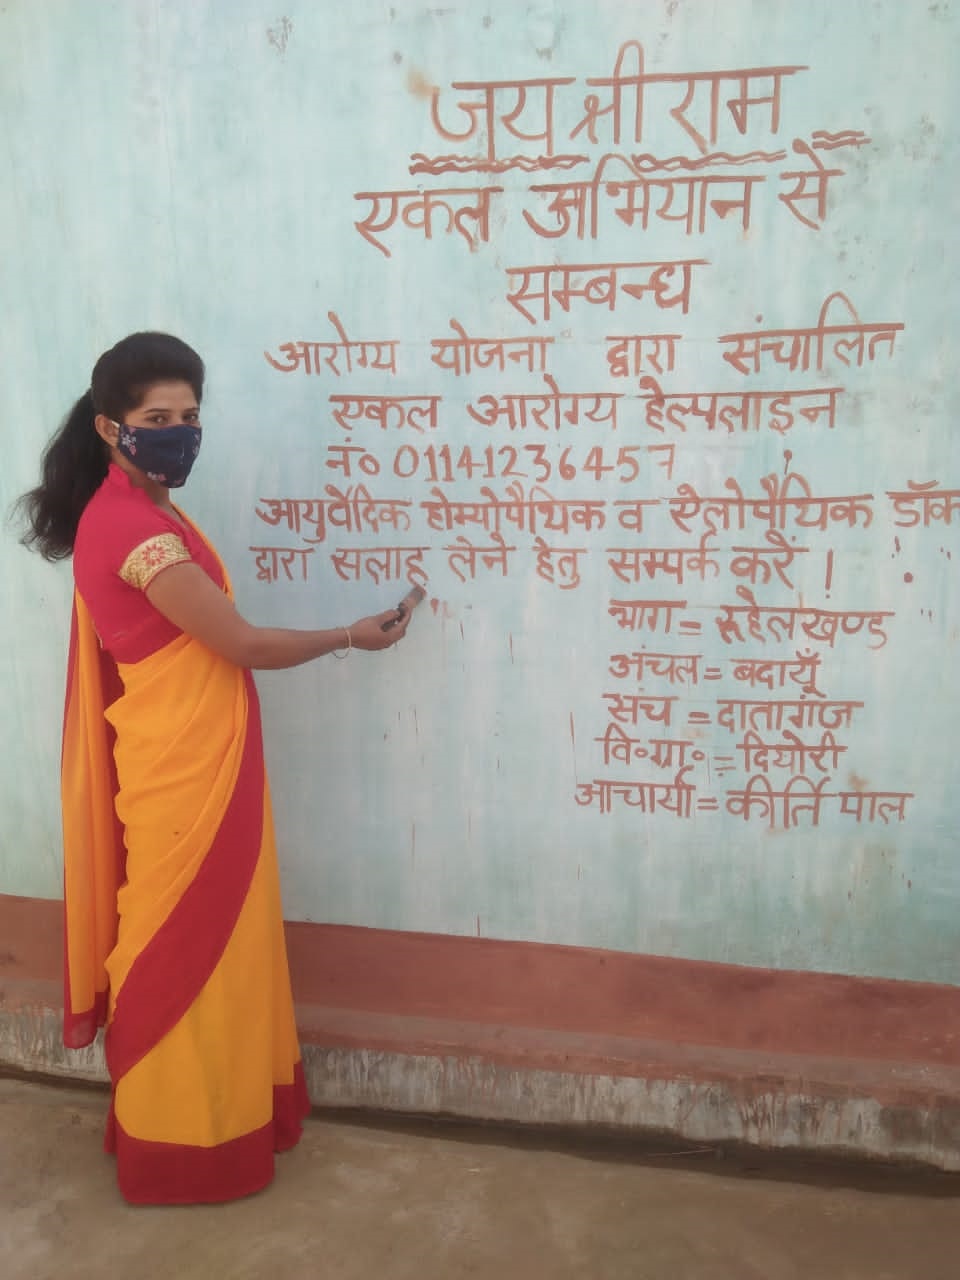 जय श्री राम
एकल अभियान से
सम्बन्ध
आरोग्य योजना द्वारा संचालित
एकल आरोग्य हेल्पलाइन
नं० 01141236457
आयुर्वेदिक होम्योपैथिक व ऐलोपैथिक डॉक
द्वारा सलाह लेने हेतु सम्पर्क करें !
भाग = रूहेलखण्ड
अंचल = बदायूँ
संच = दातागंज
वि०ग्रा० = दियोरी
आचार्या = कीर्ति पाल